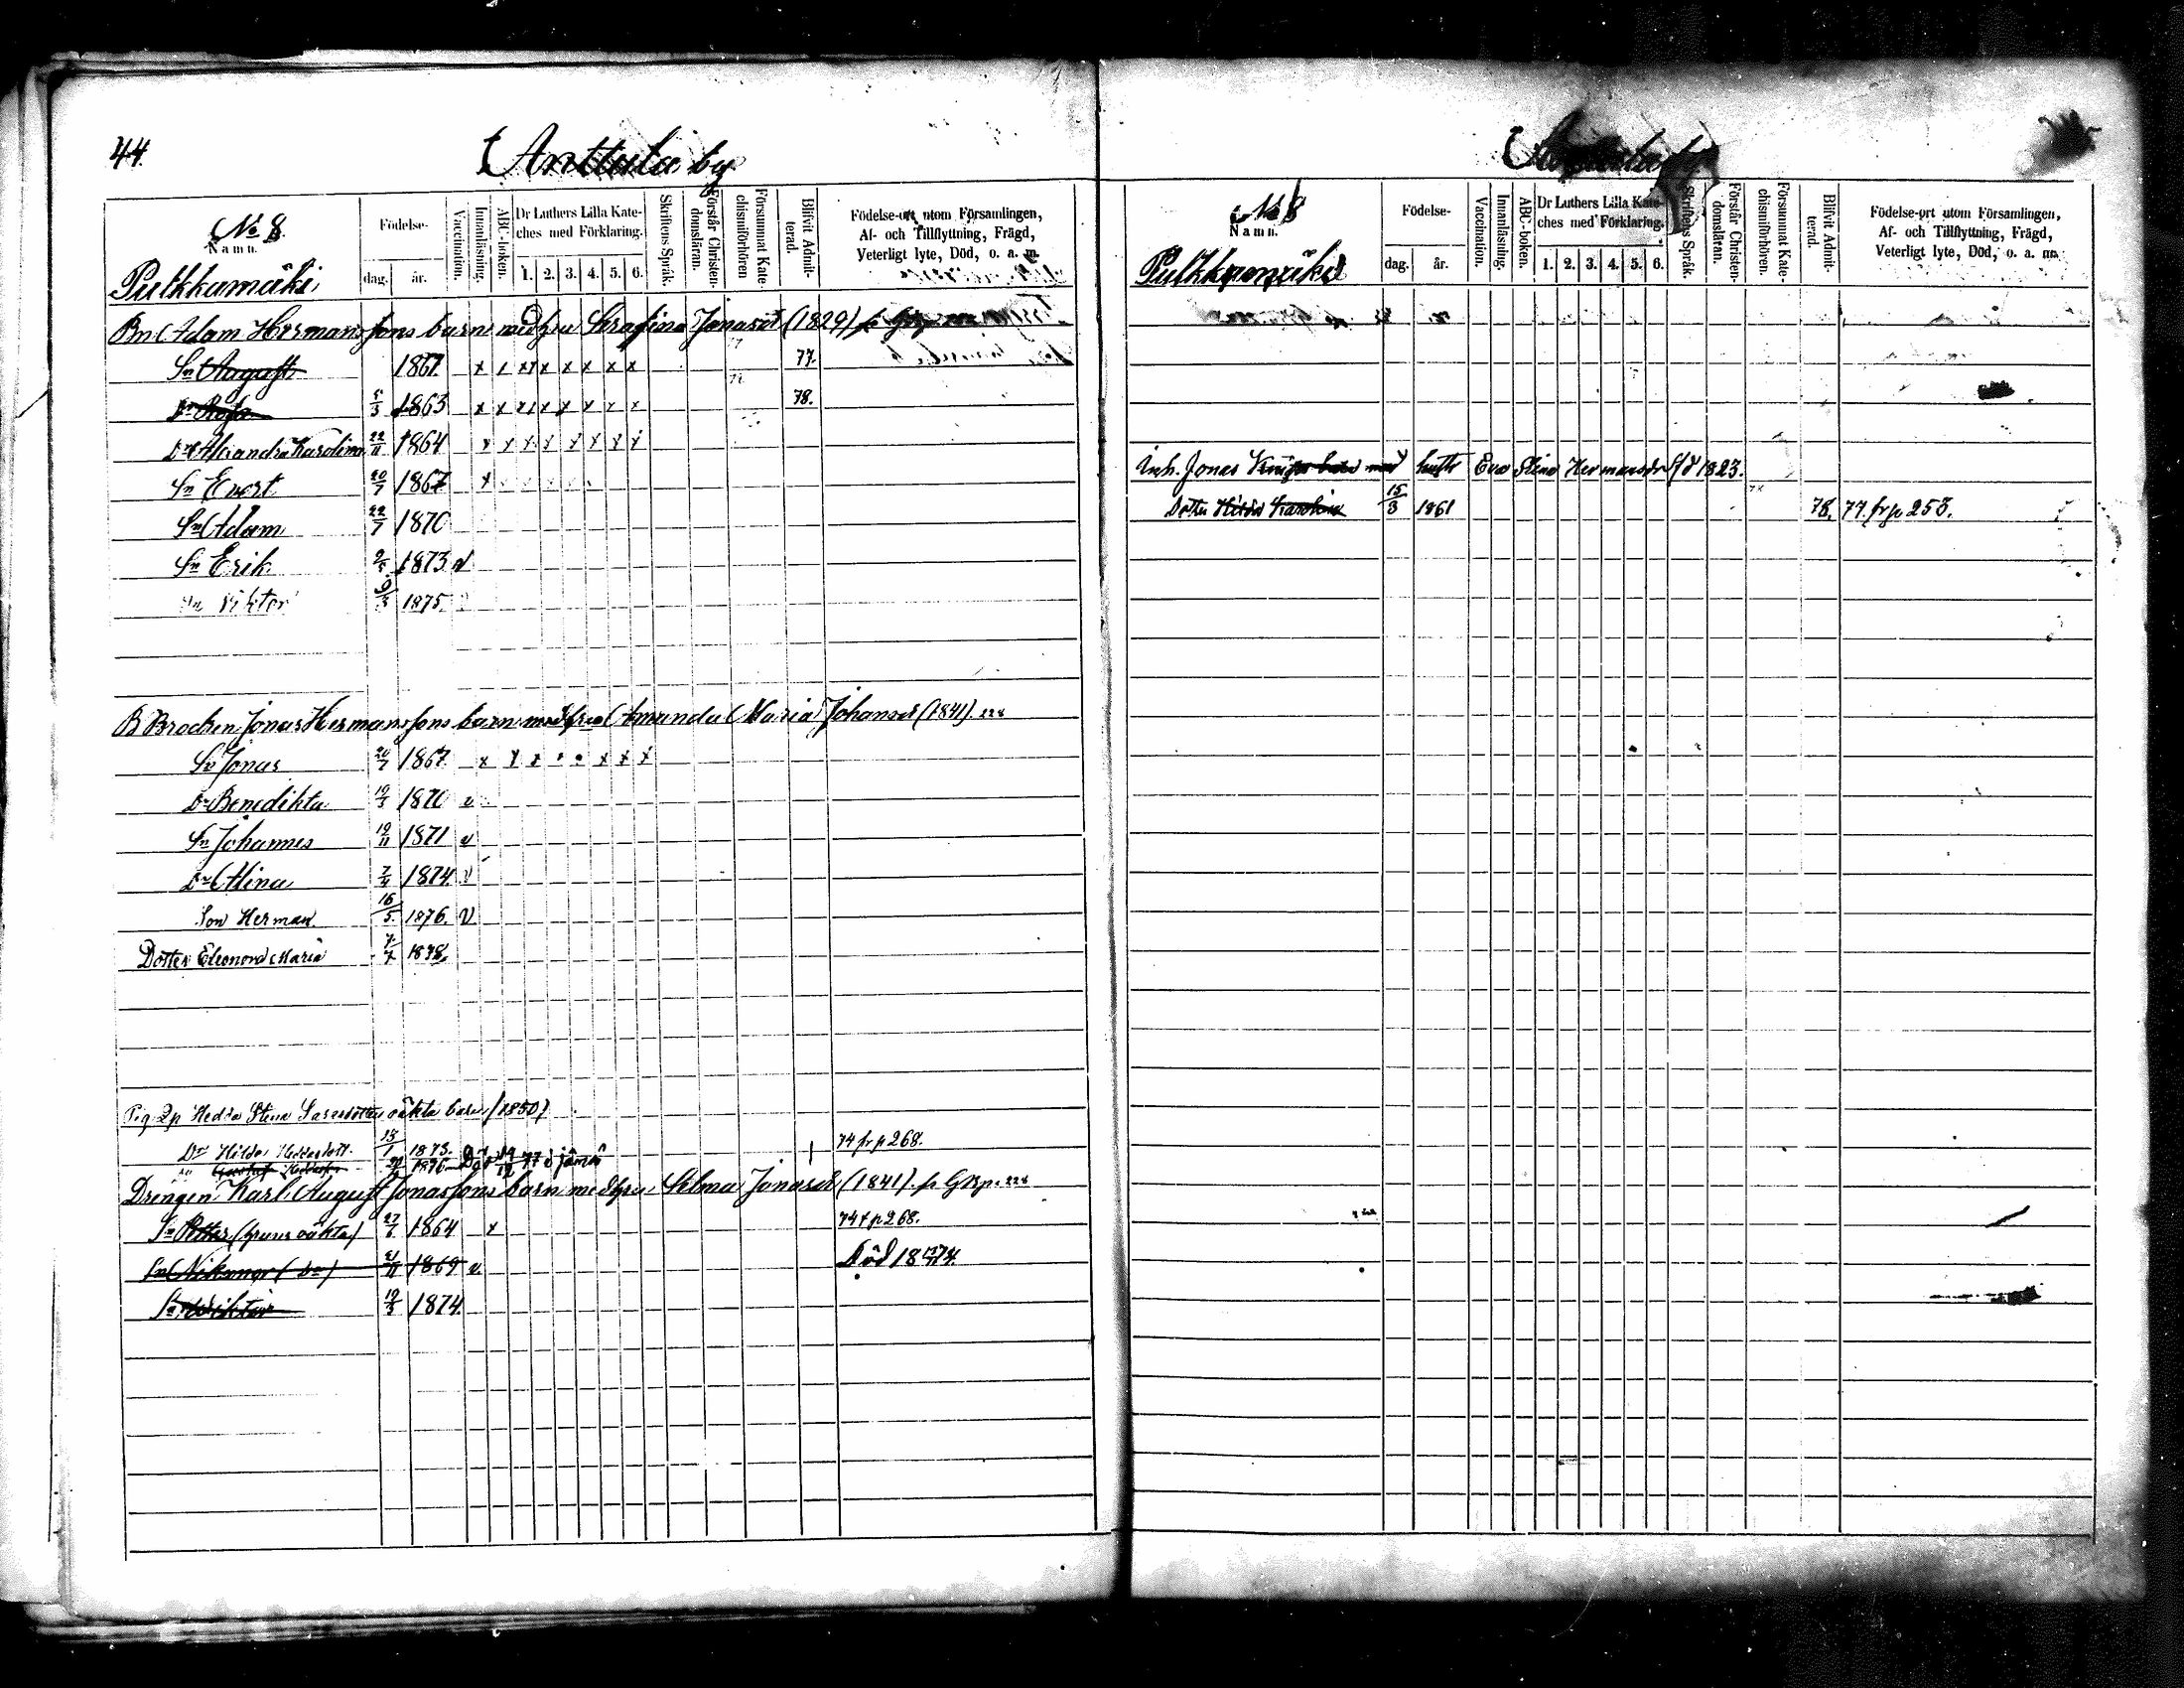 44.
Anttala by
No 8.
Namn.
Pulkkamäki
Födelse-
dag. år.
Vaccination.
Innanläsning.
ABC-boken.
Dr Luthers Lilla Kate-
ches med Förklaring.
1. 2. 3. 4. 5. 6.
Skriftens Språk.
Förstår Christen-
domsläran.
Försummat Kate
chismiförhören
Blifvit Admit-
terad.
Födelse-ort utom Församlingen,
Af- och Tillflyttning, Frägd,
Veterligt lyte, Död, o. a. m.
Bn Adam Hermanssons barn med hu Serafina Jonasd (1829)
Sn August 1861 x x x x x x x 77.
Dr Rosa 5/3 1863 x x x x x x x x 78.
Dr Alexandra Karolina 22/11 1864 x x x x x x x x
Sn Evert 20/7 1867 x
Sn Adam 22/7 1870
Sn Erik 1873 v
Sn Viktor 9/3 1875
B Brodren Jonas Hermanssons barn med hu Amanda Maria Johansd (1841). 228
Sn Jonas 20/7 1867 x x x x x x
Dr Benedikta 19/3 1870 v
Sn Johannes 19/11 1871 v
Dr Alina 7/4 1874 v
Son Herman 16/5 1876. V
Dotter Eleonora Maria 7/7 1878
Pig. Hedda Stina oäkta barn (1850)
Dr Hilda Heddasdott. 15/1 1873. 74 fr p 268.
Gustaf Heddason 1876 Död 19/12 77
Drengen Karl August Jonassons barn med hu Selma Jonasd (1841). 228
Sn Petter (hruns oäkta) 27/6 1864 x 74 f p 268.
Sn Nikanor (Do) 21/11 1869 v Död 1874.
Sn Wiktor 19/3 1874.
No 8
Namn.
Pulkkamäki
Födelse-
dag. år.
Vaccination.
Innanläsning.
ABC-boken.
Dr Luthers Lilla Kate-
ches med Förklaring.
1. 2. 3. 4. 5. 6.
Skriftens Språk.
Förstår Christen-
domsläran.
Försummat Kate-
chismiförhören.
Blifvit Admit-
terad.
Födelse-ort utom Församlingen,
Af- och Tillflyttning, Frägd,
Veterligt lyte, Död, o. a. m.
Inh. Jonas med hustr Eva Stina Hermansdr f d 1823.
Dotter Hilda Karolina 15/3 1861 78. 77. fr p 258.